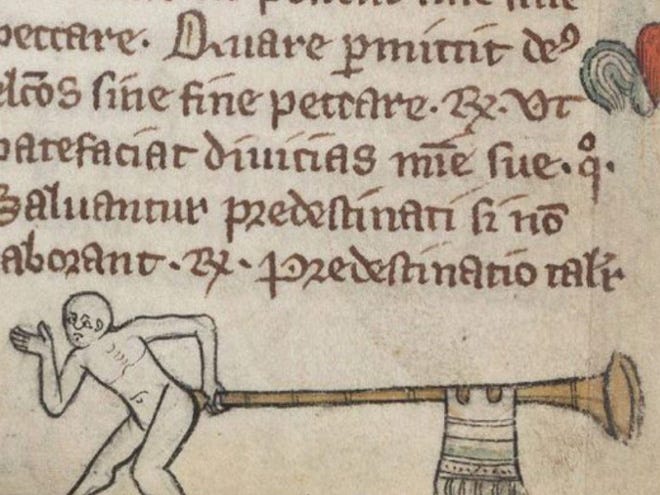 peccare. Quare ꝑmittit deꝰ
elcōs sine fine peccare. ℞. Vt
patefaciat diuicias mīe sue. qͦ.
Saluantur predestinati si nō
aborant. ℞. Predestinatio talr̄